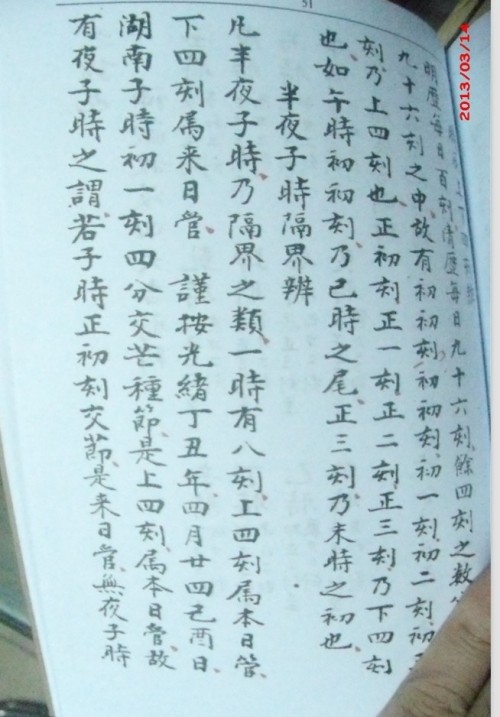 51
2013/03/14
明歷每日百刻清歷每日九十六刻餘四刻之數
九十六刻之中故有初初刻初初刻初一刻初二刻初
刻乃上四刻也正初刻正一刻正二刻正三刻乃下四刻
也如午時初初刻乃巳時之尾正三刻乃未時之初也
半夜子時隔界辨
凡半夜子時乃隔界之類一時有八刻上四刻屬本日管
下四刻屬来日管 謹按光緒丁丑年四月廿四己酉日
湖南子時初一刻四分交芒種節是上四刻屬本日管故
有夜子時之謂若子時正初刻交節是来日管無夜子時